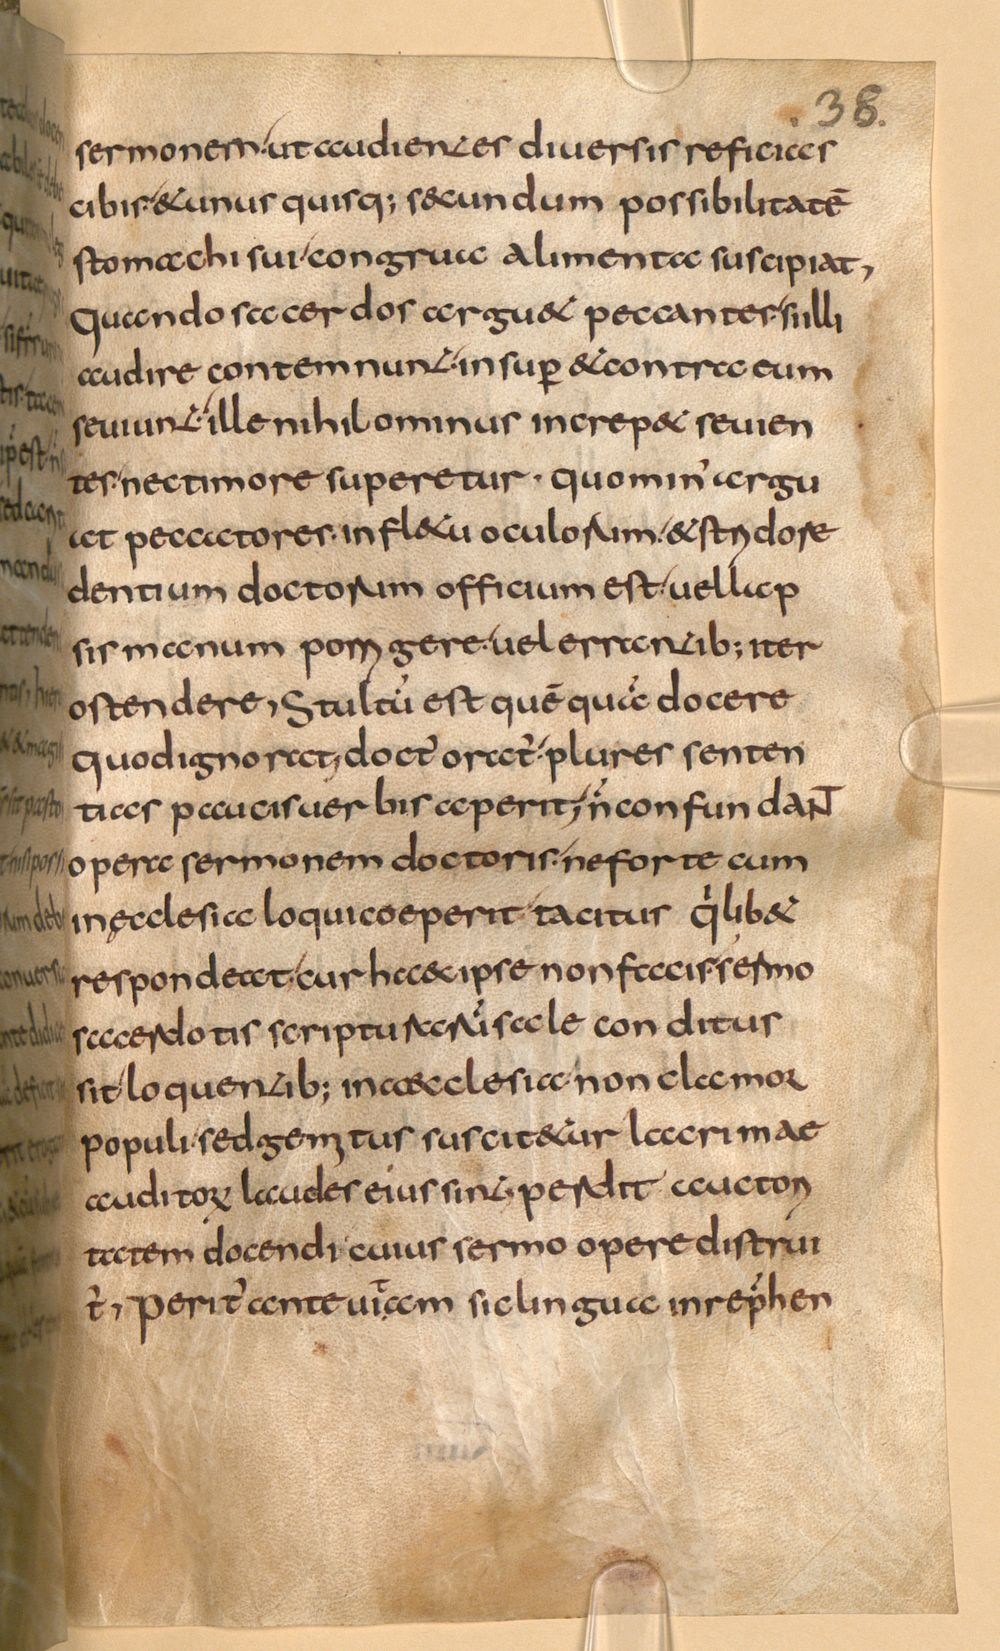 38.
sermonem. ut audientes diuersis reficias
cibis. & unus quisq; s&cundum possibilitatē
stomachi sui congrua alimenta suscipiat,
Quando sacerdos argu& peccantes. si illi
audire contemnunt. insup̱ & contra eum
seuiunt. ille nihilominus increp& seuien
tes. nec timore superetur. quomin' argu
at peccatores. in fl&u oculorum. & stridore
dentium doctorum officium est. uel lap
sis manum porrigere. uel errantib; iter
ostendere, Stultū est quē quā docere
quod ignorat, doct' orat'. plures senten
tias paucis uerbis aperit, ñ confundant
opera sermonem doctoris. ne forte cum
in ęcclesia loqui coeperit tacitus q'lib&
respondeat. cur haec ipse non facis. sermo
sacerdotis scripturarū sale conditus
sit. loquentib; in aecclesia. non clamor
populi. sed gemitus suscit&ur lacrimae
auditorum laudes eius sint, perdit auctori
tatem docendi cuius sermo opere distrui
t', Perit' ante uitam sic lingua inrep'hen